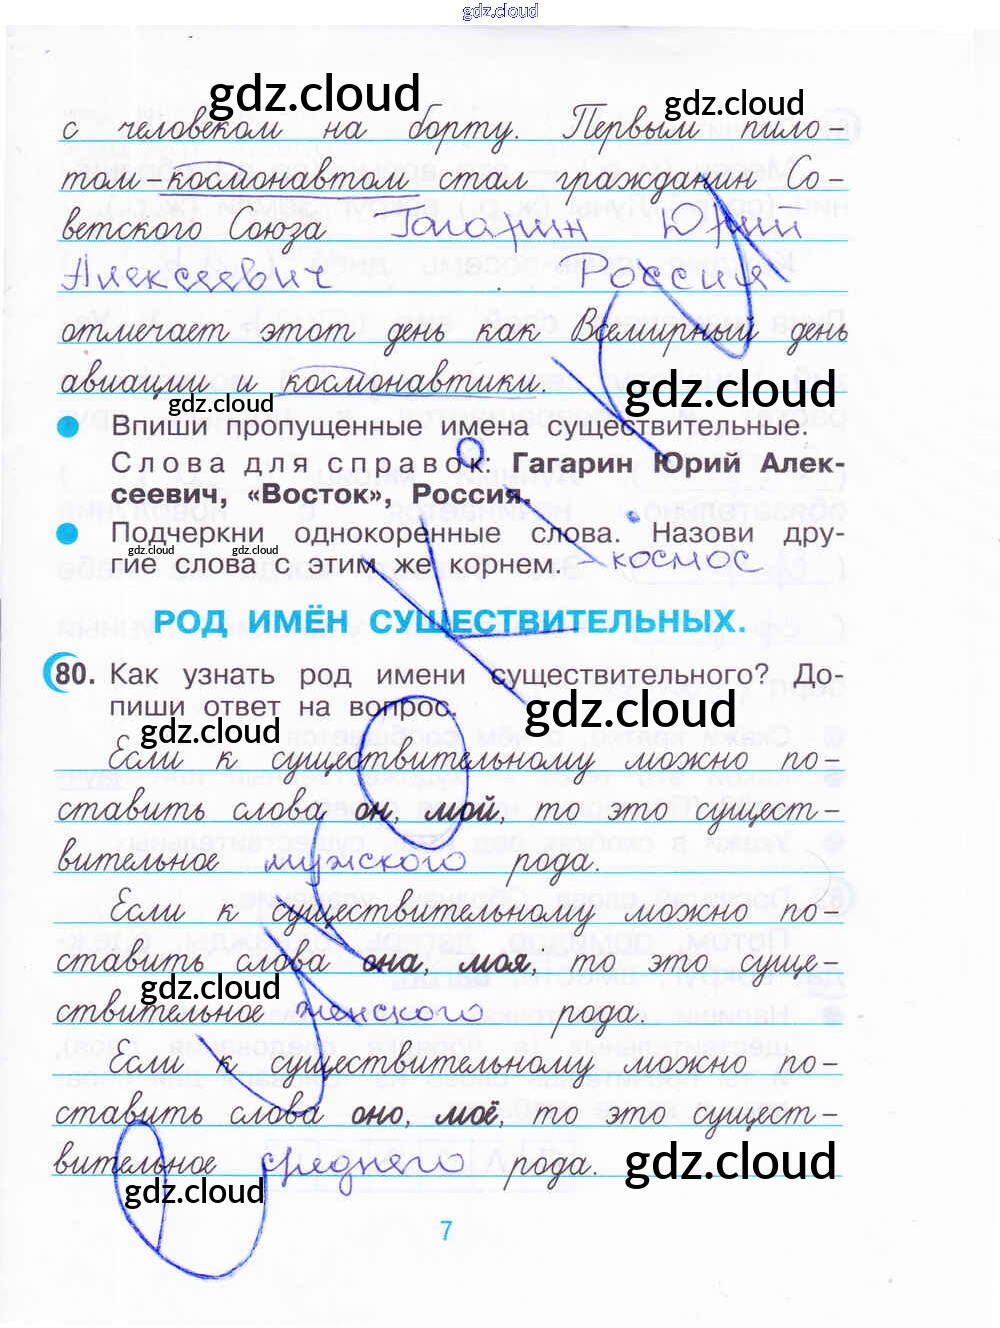 gdz.cloud
gdz.cloud
gdz.cloud
с человеком на борту. Первым пило-
том-космонавтом стал гражданин Со-
ветского Союза Гагарин Юрий
Алексеевич. Россия
отмечает этот день как Всемирный день
авиации и космонавтики.
gdz.cloud
gdz.cloud
Впиши пропущенные имена существительные.
Слова для справок: Гагарин Юрий Алек-
сеевич, «Восток», Россия.
Подчеркни однокоренные слова. Назови дру-
gdz.cloud gdz.cloud
гие слова с этим же корнем. - космос
РОД ИМЁН СУЩЕСТВИТЕЛЬНЫХ.
80. Как узнать род имени существительного? До-
пиши ответ на вопрос.
gdz.cloud
gdz.cloud
Если к существительному можно по-
ставить слова он, мой, то это сущест-
вительное мужского рода.
Если к существительному можно по-
ставить слова она, моя, то это суще-
gdz.cloud
ствительное женского рода.
Если к существительному можно по-
ставить слова оно, моё, то это сущест-
вительное среднего рода.
gdz.cloud
gdz.cloud
7